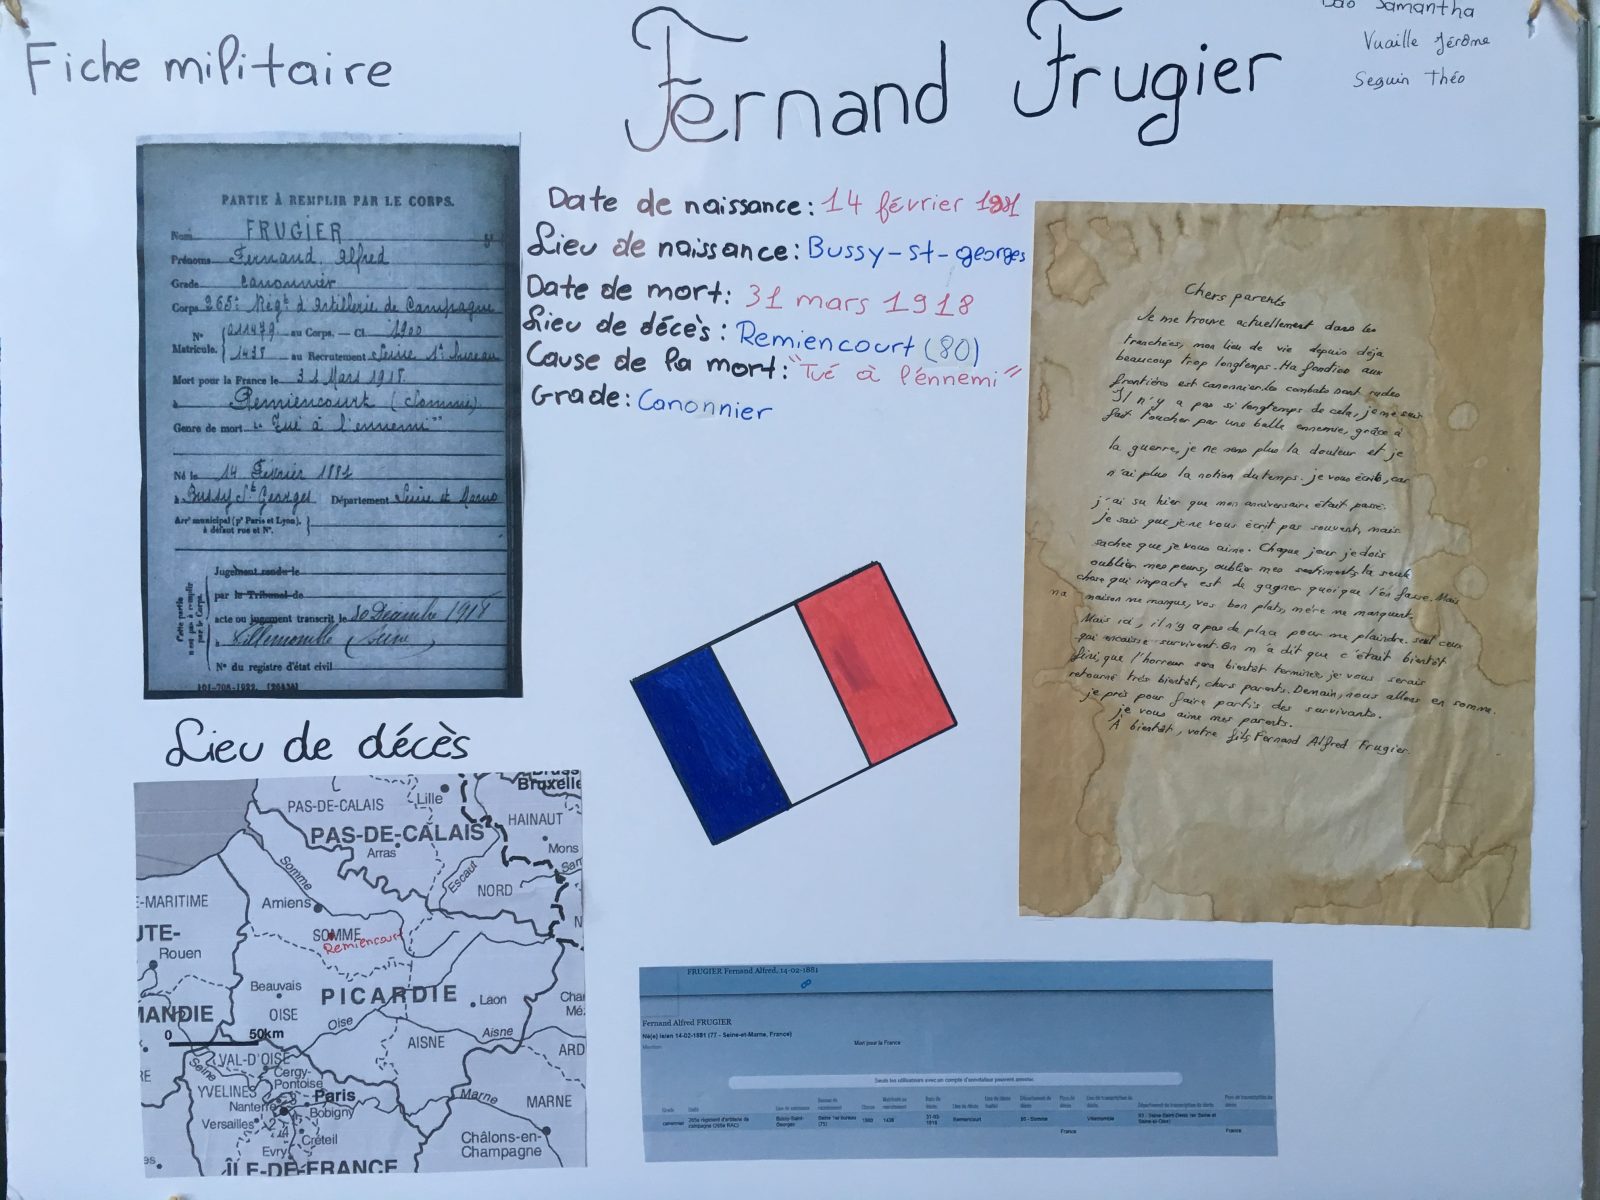 Fiche militaire
Fernand Frugier
Samantha
Vuaille Jérôme
Seguin Théo
PARTIE À REMPLIR PAR LE CORPS.
Nom FRUGIER
Prénoms Fernand, Alfred
Grade canonnier
Corps 265e Régt d'Artillerie de Campagne
N° 011479 au Corps. — Cl. 1900
Matricule. 1438 au Recrutement Seine 1er bureau
Mort pour la France le 31 Mars 1918
à Remiencourt (Somme)
Genre de mort "Tué à l'ennemi"
Né le 14 Février 1881
à Bussy St Georges Département Seine et Marne
Arrt municipal (pr Paris et Lyon),
à défaut rue et N°.
Cette partie
n'est pas à remplir
par le Corps.
Jugement rendu le
par le Tribunal de
acte ou jugement transcrit le 10 Décembre 1918
à Villemomble (Seine)
N° du registre d'état civil
101-708-1922. [26434]
Date de naissance: 14 février
Lieu de naissance: Bussy-st-georges
Date de mort: 31 mars 1918
Lieu de décès: Remiencourt (80)
Cause de la mort: "Tué à l'énnemi"
Grade: Canonnier
Chers parents
Je me trouve actuellement dans les
tranchées, mon lieu de vie depuis déjà
beaucoup trop longtemps. Ma fonction aux
frontières est canonnier. les combats sont rudes
Il n'y a pas si longtemps de cela, je me suis
fait toucher par une balle ennemie, grâce à
la guerre, je ne sens plus la douleur et je
n'ai plus la notion du temps. je vous écris, car
j'ai su hier que mon anniversaire était passé.
Je sais que je ne vous écrit pas souvent, mais
sachez que je vous aime. Chaque jour je dois
oublier mes peurs, oublier mes sentiments, la seule
chose qui importe est de gagner quoi que l'en fasse. Mais
ma maison me manque, vos bon plats, mère me manquent.
Mais ici, il n'y a pas de place pour me plaindre. seul ceux
qui encaisse survivent. On m'a dit que c'était bientôt
fini, que l'horreur sera bientôt terminer, je vous serais
retourné très bientôt, chers parents. Demain, nous allons en somme.
je pris pour faire partis des survivants.
je vous aime mes parents.
À bientôt, votre fils Fernand Alfred Frugier.
Lieu de décès
Bruxelle
PAS-DE-CALAIS
Lille
HAINAUT
PAS-DE-CALAIS
Arras
Mons
Somme
Escaut
NORD
-MARITIME
Amiens
SOMME
Remiencourt
UTE-
Rouen
Beauvais
PICARDIE
Laon
MANDIE
OISE
0 50km
Oise
Aisne
AISNE
ARD
VAL-D'OISE
Seine
Cergy-
Pontoise
YVELINES
Paris
Marne
MARNE
Nanterre
Bobigny
Versailles
Créteil
Evry
Châlons-en-
Champagne
ÎLE-DE-FRANCE
FRUGIER Fernand Alfred, 14-02-1881
Fernand Alfred FRUGIER
Né(e) le/en 14-02-1881 (77 - Seine-et-Marne, France)
Mort pour la France
Seuls les utilisateurs avec un compte d'annotateur peuvent annoter.